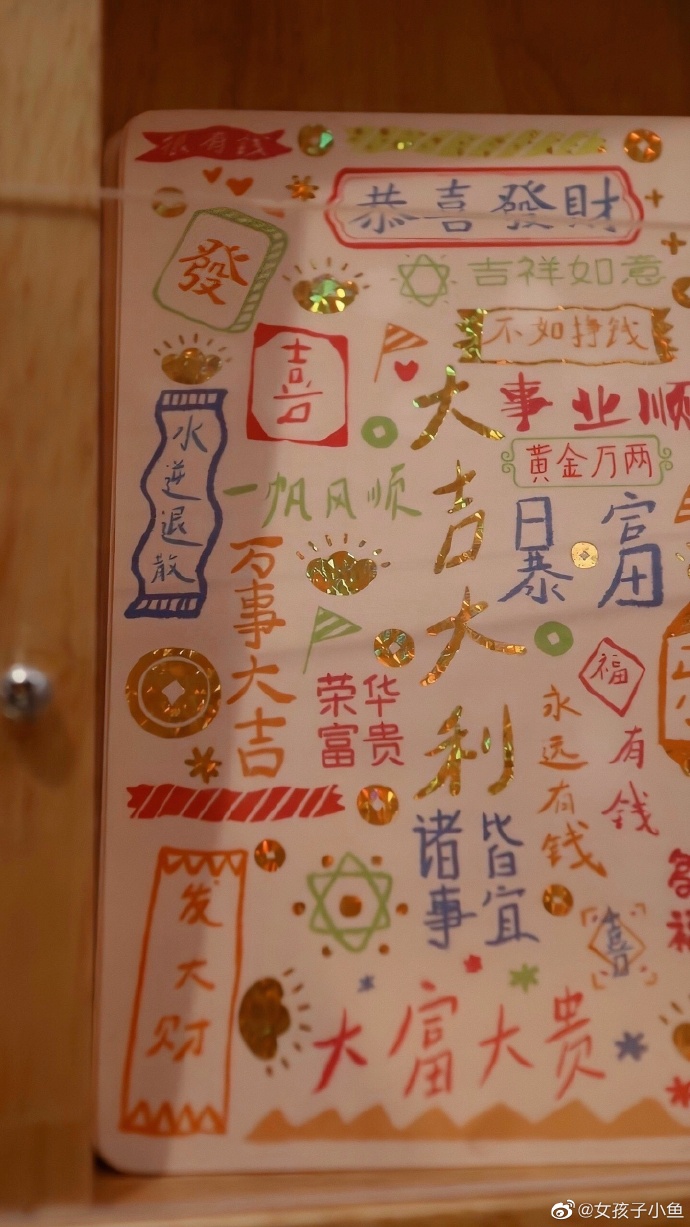 很有钱
恭喜發財
發
吉祥如意
不如挣钱
喜
大吉大利
事业顺
黄金万两
水逆退散
一帆风顺
日暴
富
万事大吉
福
荣华
富贵
永远有钱
有钱
诸事
皆宜
喜
发大财
大富大贵
@女孩子小鱼